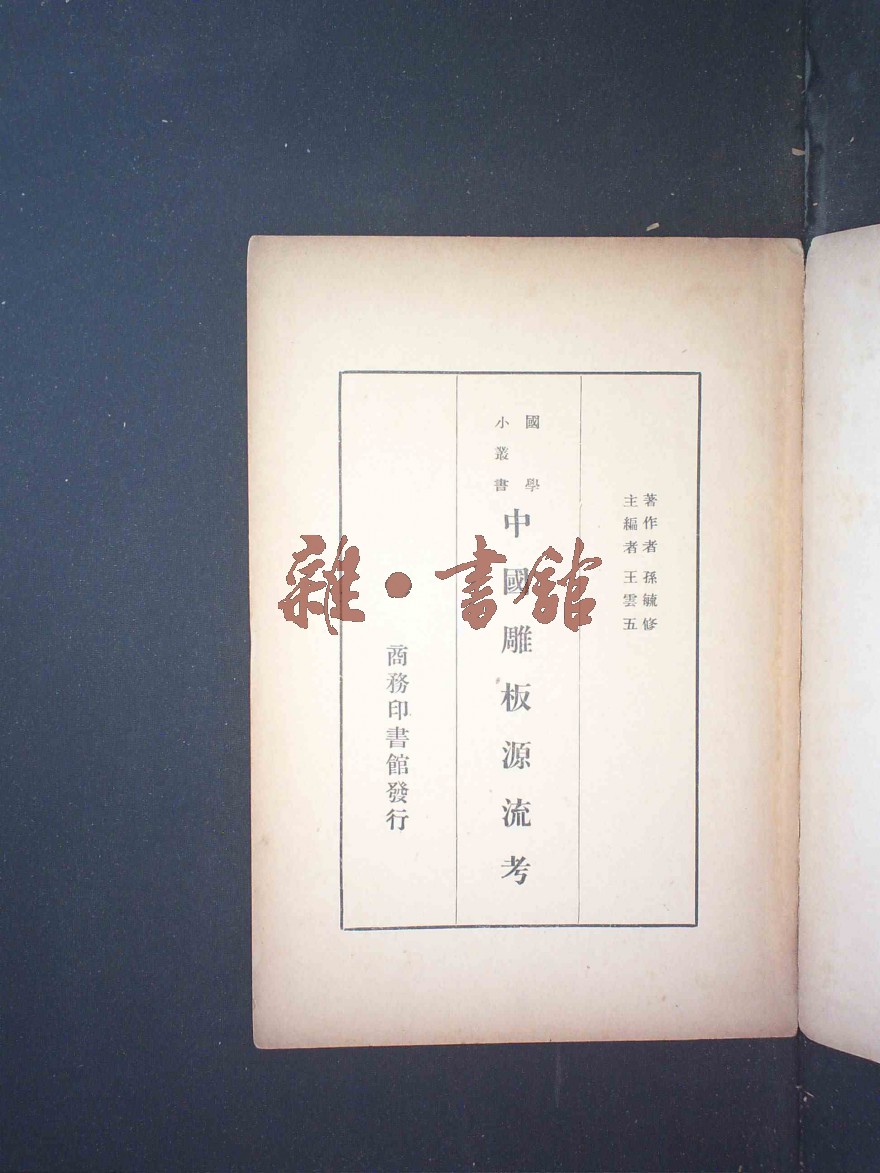 著作者 孫毓修
主編者 王雲五
國學
小叢書
中國雕板源流考
商務印書館發行
雜·書館